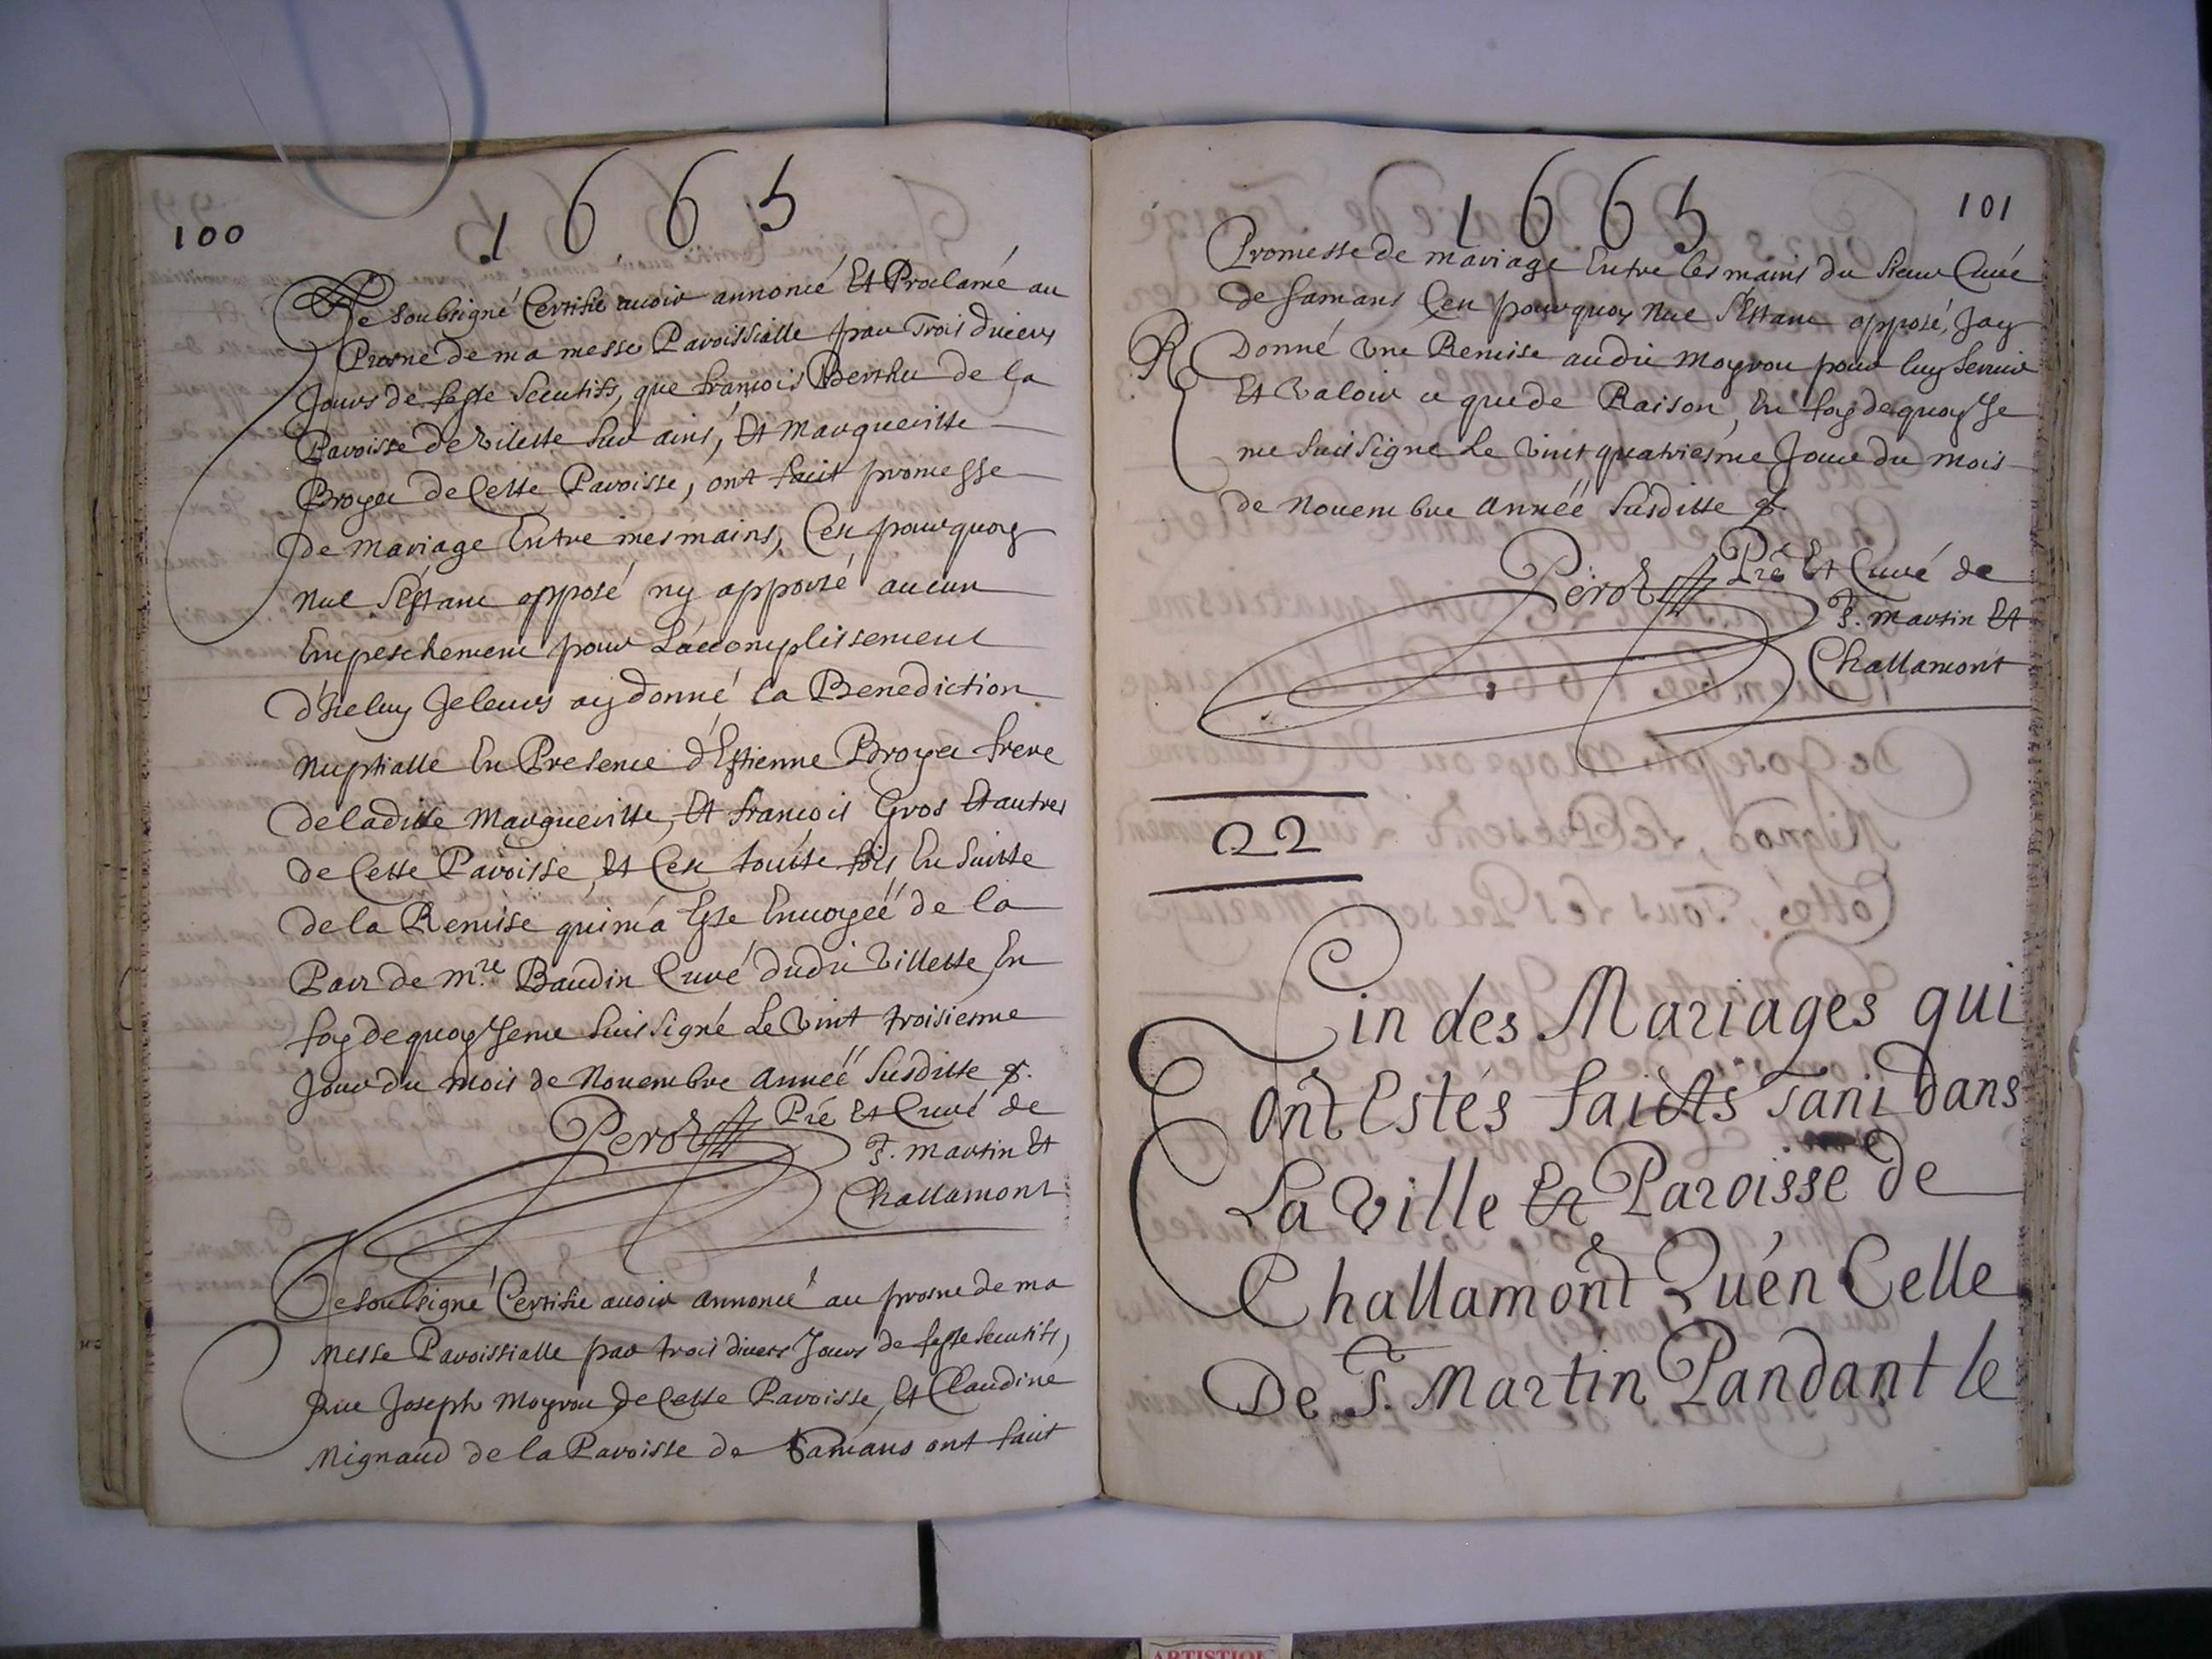 100
1665
Je soubsigné Certifie auoir annoncé Et Proclamé au
Prosne de ma messe Paroissialle par Trois diuers
Jours de feste secutifs, que françois Berthu de la
Paroisse de Vilette sur ains, Et Margueritte
Broyer de Cette Paroisse, ont fait promesse
de Mariage Entre mes mains, Cest pourquoy
nul s'éstant opposé ny apporté aucun
Empeschement pour L'accomplissement
d'Iceluy Je leurs aÿ donné la Benediction
nuptialle En Presence d'Estienne Broyer frere
de laditte Margueritte, Et françois Gros Et autres
de Cette Paroisse, Et Cest toutte fois En suitte
de la Remise qui m'a Este Enuoyéé de la
Part de Mre. Baudin Curé dudit Villette En
foy de quoy Je me suis signé Le Vint troisiesme
Jour du mois de Nouembre annéé susditte &.
Perot Pre Et Curé de
S. Martin Et
Challamont
Je soubsigné Certifie auoir annoncé au prosne de ma
Messe Paroissialle par trois diuers Jours de feste secutifs,
que Joseph Moyrou de Cette Paroisse, Et Claudine
Mignaud de la Paroisse de samans ont fait
1665
101
Promesse de mariage Entre les mains du sieur Curé
de samans Cest pourquoy nul s'éstant opposé, Jay
R
Donné Vne Remise audit Moyrou pour luy seruir
Et Valoir ce que de Raison, En foy de quoy Je
me suis signé Le Vint quatriesme Jour du mois
de Nouembre annéé susditte &.
Perot Pre Et Curé de
S. Martin Et
Challamont
22
Fin des Mariages qui
ont Estés faicts Tant dans
La Ville Et Paroisse de
Challamont Qu'én Celle
De S. Martin Pandant le